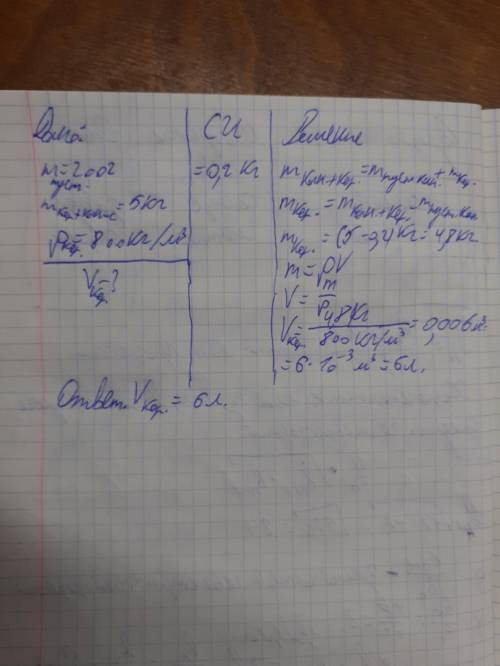 Дано: СИ Решение
m пуст. = 200г = 0,2 кг
m кер.+кан. = 5 кг
ρ кер. = 800 кг/м³
V кер. - ?
m кан.+кер. = m пуст.кан. + m кер.
m кер. = m кан.+кер. - m пуст.кан.
m кер. = (5 - 0,2) кг = 4,8 кг
m = ρV
V = m/ρ
V кер. = 4,8 кг / 800 кг/м³ = 0,006 м³
= 6 · 10⁻³ м³ = 6 л.
Ответ: V кер. = 6 л.